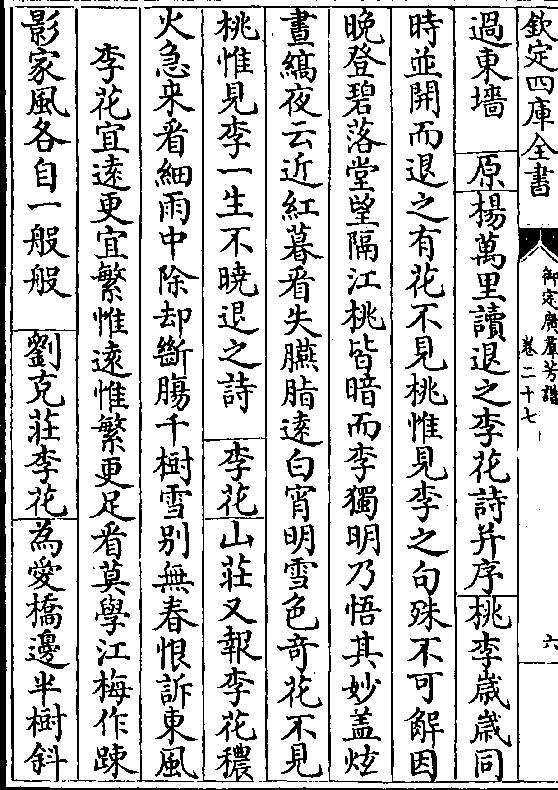 欽定四庫全書
御定廣羣芳譜
卷二十七
六
過東墻　原楊萬里讀退之李花詩并序桃李歲歲同
時並開而退之有花不見桃惟見李之句殊不可解因
晚登碧落堂望隔江桃皆暗而李獨明乃悟其妙蓋炫
晝縞夜云近紅暮看失臙脂遠白宵明雪色奇花不見
桃惟見李一生不曉退之詩　李花山莊又報李花穠
火急来看細雨中除却斷腸千樹雪别無春恨訴東風
李花宜遠更宜繁惟遠惟繁更足看莫學江梅作踈
影家風各自一般般　劉克莊李花為愛橋邊半樹斜